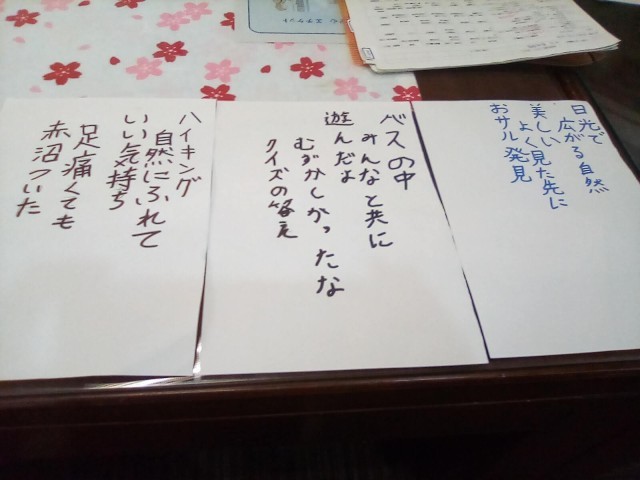 日光で
広がる自然
美しい
よく見た先に
おサル発見
バスの中
みんなと共に
遊んだよ
むずかしかったな
クイズの答え
ハイキング
自然にふれて
いい気持ち
足痛くても
赤沼ついた